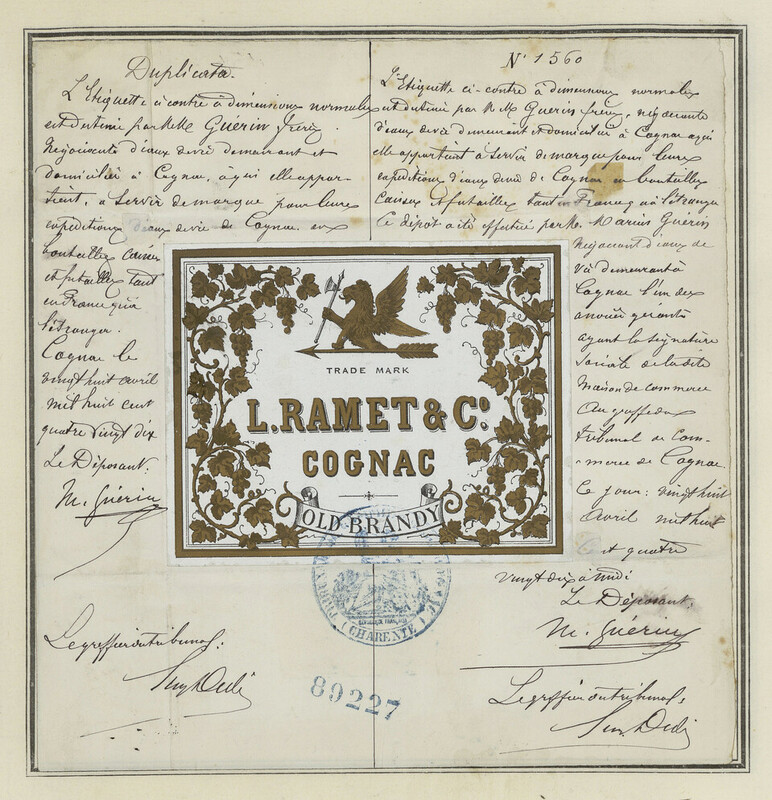 Duplicata.
L'Etiquette ci contre à dimensions normales
est destinée par M.M. Guérin frères
Négociants d'eaux de vie demeurant et
domiciliés à Cognac, à qui elle appar-
tient, à servir de marque pour leurs
expéditions d'eaux de vie de Cognac en
bouteilles caisses
et futailles tant
en France qu'à
l'étranger.
Cognac le
vingt huit avril
mil huit cent
quatre vingt dix
Le Déposant:
M. Guérin
Le greffier du tribunal:
N° 1560
L'Etiquette ci-contre à dimensions normales
est destinée par M.M. Guérin frères, négociants
d'eaux de vie demeurant et domiciliés à Cognac à qui
elle appartient à servir de marque pour leurs
expéditions d'eaux de vie de Cognac en bouteilles
caisses et futailles tant en France qu'à l'étranger
Ce dépôt a été effectué par M. Marius Guérin
négociant d'eaux de
vie demeurant à
Cognac l'un des
associés gérants
ayant la signature
sociale de la dite
maison de commerce
au greffe du
tribunal de Com-
-merce de Cognac
ce jour: vingt huit
avril mil huit
cent quatre
vingt dix à midi
Le Déposant,
M. Guérin
Le greffier du tribunal:
TRADE MARK
L. RAMET & Cº.
COGNAC
OLD BRANDY
(CHARENTE)
89227